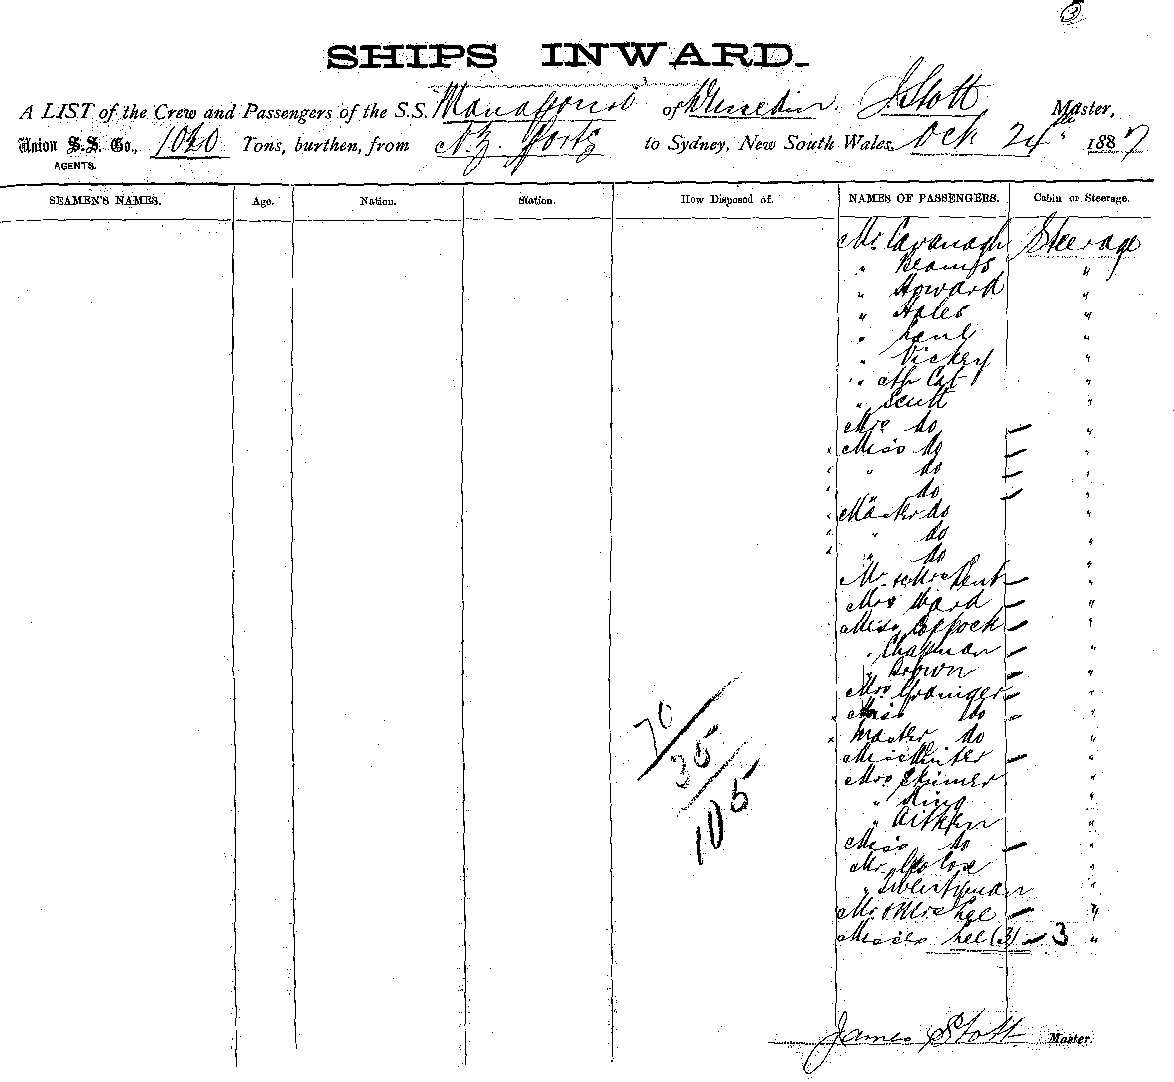 3
SHIPS INWARD.
A LIST of the Crew and Passengers of the S.S. Manapouri of Dunedin. J Stott Master,
Union S.S. Co., 1020 Tons, burthen, from N.Z. Ports to Sydney, New South Wales, Oct 24th 1887
AGENTS.
SEAMEN'S NAMES. Age. Nation. Station. How Disposed of. NAMES OF PASSENGERS. Cabin or Steerage.
Mr. Cavanagh Steerage
" "
" Howard "
" Ables "
" "
" Vickey "
" "
" Scutt "
Mrs do "
Miss do "
" do "
" do "
Master do "
" do "
" do "
Mr. & Mrs Kent "
Mrs Ward "
Miss Coppock "
" Chapman "
" Brown "
Mrs Grainger "
Miss do "
Master do "
Miss "
Mrs Skinner "
" King "
" Aitken "
Miss do "
Mr. "
" Twentyman "
Mr & Mrs Lee "
Misses Lee (3) 3 "
70
35
105
James Stott Master